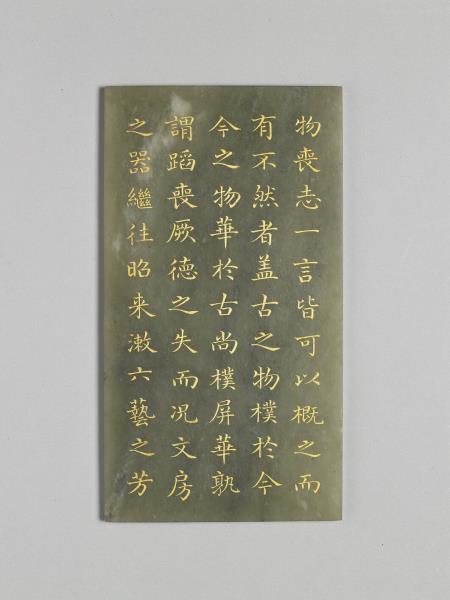 物喪志一言皆可以概之而
有不然者盖古之物樸於今
今之物華於古尚樸屏華孰
謂蹈喪厥德之失而况文房
之器繼往昭来漱六藝之芳